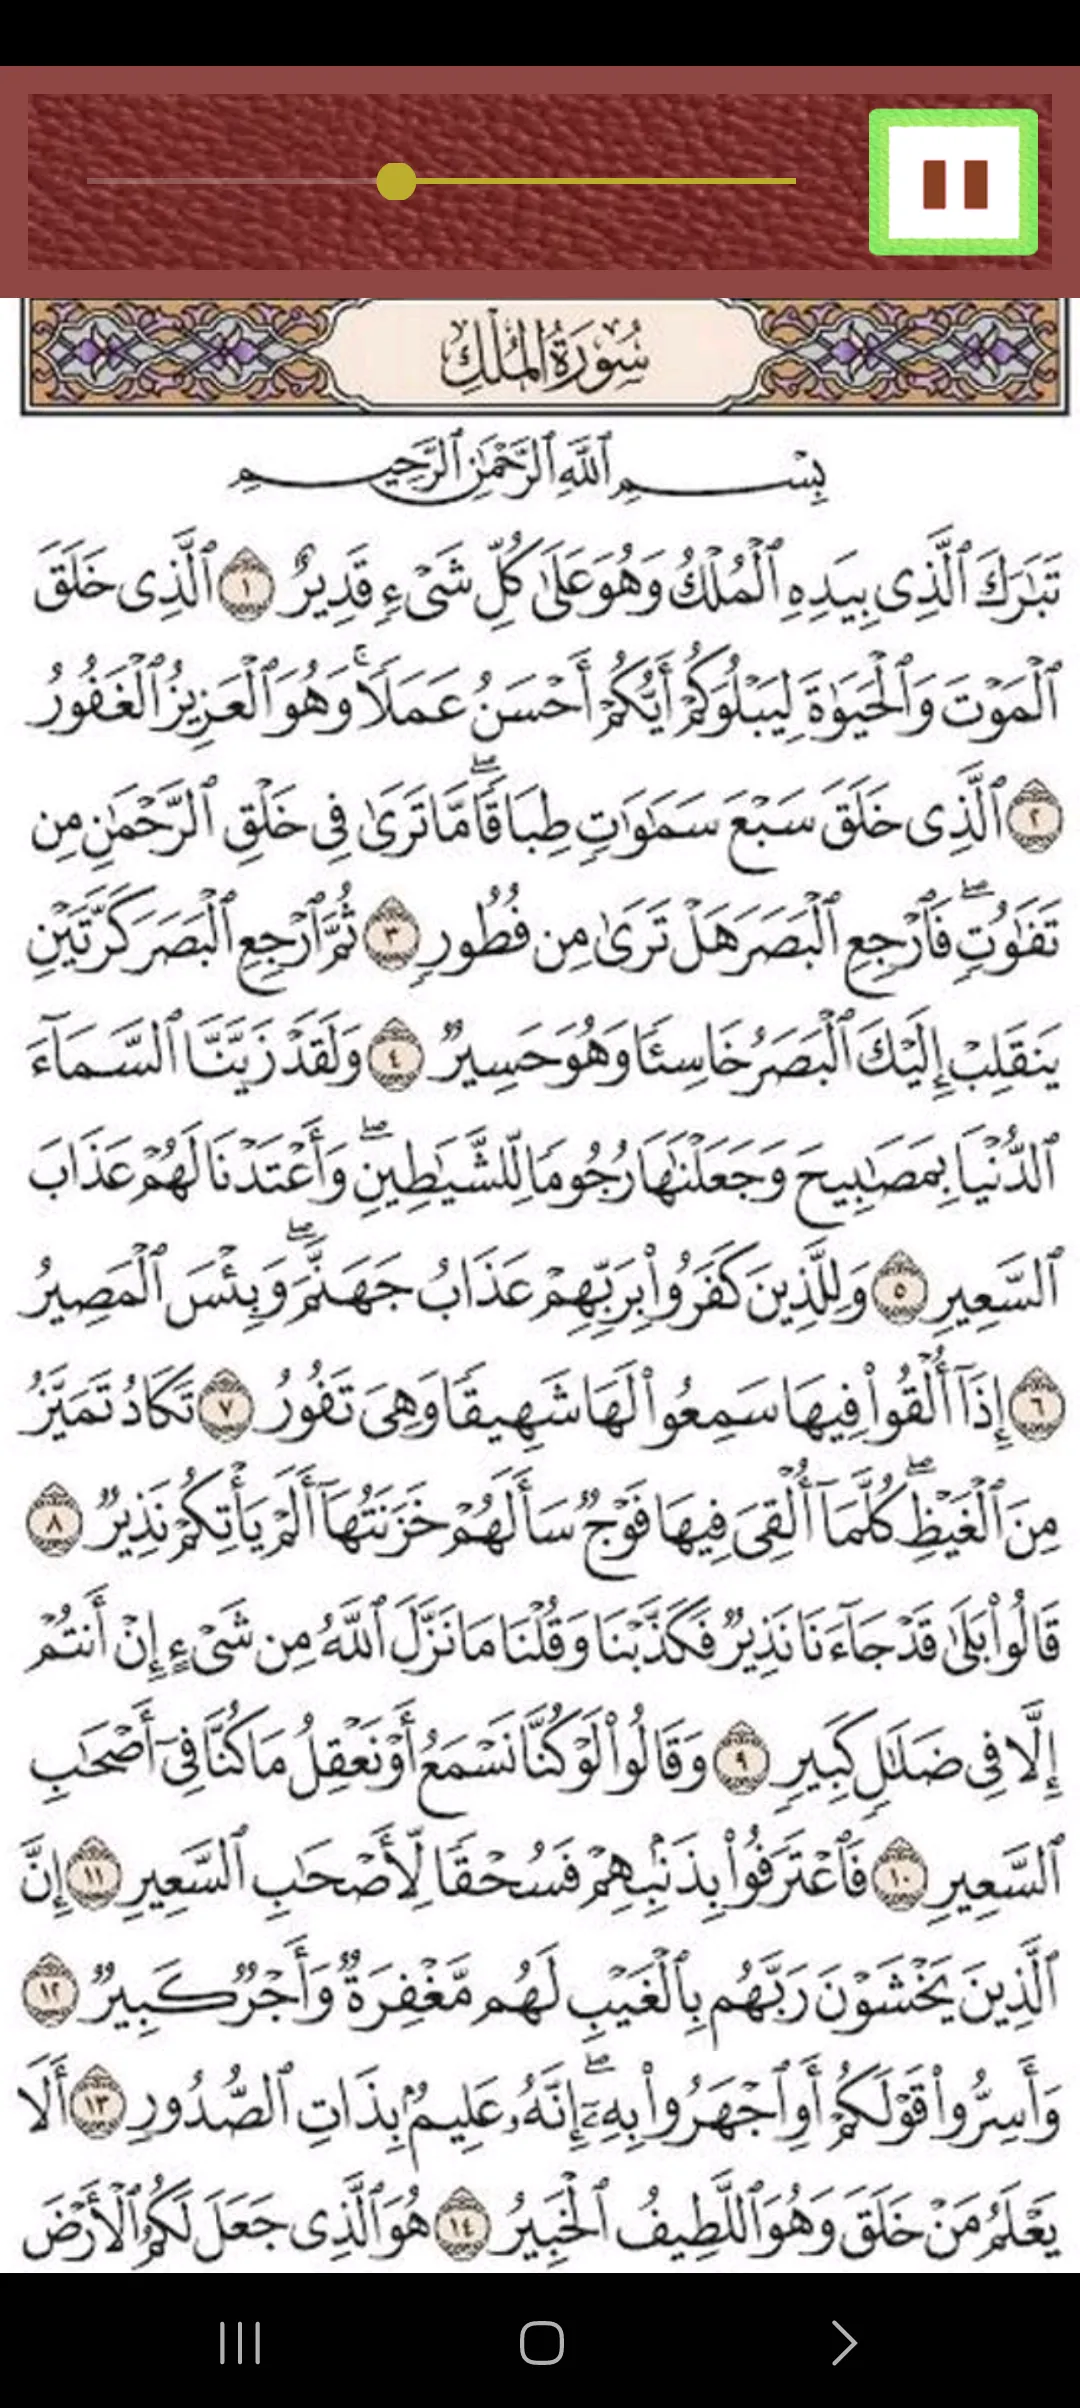 سُورَةُ المُلْكِ
بِسْمِ ٱللَّهِ ٱلرَّحْمَٰنِ ٱلرَّحِيمِ
تَبَٰرَكَ ٱلَّذِى بِيَدِهِ ٱلْمُلْكُ وَهُوَ عَلَىٰ كُلِّ شَىْءٍ قَدِيرٌ ١ ٱلَّذِى خَلَقَ
ٱلْمَوْتَ وَٱلْحَيَوٰةَ لِيَبْلُوَكُمْ أَيُّكُمْ أَحْسَنُ عَمَلًا ۚ وَهُوَ ٱلْعَزِيزُ ٱلْغَفُورُ
٢ ٱلَّذِى خَلَقَ سَبْعَ سَمَٰوَٰتٍ طِبَاقًا ۖ مَّا تَرَىٰ فِى خَلْقِ ٱلرَّحْمَٰنِ مِن
تَفَٰوُتٍ ۖ فَٱرْجِعِ ٱلْبَصَرَ هَلْ تَرَىٰ مِن فُطُورٍ ٣ ثُمَّ ٱرْجِعِ ٱلْبَصَرَ كَرَّتَيْنِ
يَنقَلِبْ إِلَيْكَ ٱلْبَصَرُ خَاسِئًا وَهُوَ حَسِيرٌ ٤ وَلَقَدْ زَيَّنَّا ٱلسَّمَآءَ
ٱلدُّنْيَا بِمَصَٰبِيحَ وَجَعَلْنَٰهَا رُجُومًا لِّلشَّيَٰطِينِ ۖ وَأَعْتَدْنَا لَهُمْ عَذَابَ
ٱلسَّعِيرِ ٥ وَلِلَّذِينَ كَفَرُوا۟ بِرَبِّهِمْ عَذَابُ جَهَنَّمَ ۖ وَبِئْسَ ٱلْمَصِيرُ
٦ إِذَآ أُلْقُوا۟ فِيهَا سَمِعُوا۟ لَهَا شَهِيقًا وَهِىَ تَفُورُ ٧ تَكَادُ تَمَيَّزُ
مِنَ ٱلْغَيْظِ ۖ كُلَّمَآ أُلْقِىَ فِيهَا فَوْجٌ سَأَلَهُمْ خَزَنَتُهَآ أَلَمْ يَأْتِكُمْ نَذِيرٌ ٨
قَالُوا۟ بَلَىٰ قَدْ جَآءَنَا نَذِيرٌ فَكَذَّبْنَا وَقُلْنَا مَا نَزَّلَ ٱللَّهُ مِن شَىْءٍ إِنْ أَنتُمْ
إِلَّا فِى ضَلَٰلٍ كَبِيرٍ ٩ وَقَالُوا۟ لَوْ كُنَّا نَسْمَعُ أَوْ نَعْقِلُ مَا كُنَّا فِىٓ أَصْحَٰبِ
ٱلسَّعِيرِ ١٠ فَٱعْتَرَفُوا۟ بِذَنۢبِهِمْ فَسُحْقًا لِّأَصْحَٰبِ ٱلسَّعِيرِ ١١ إِنَّ
ٱلَّذِينَ يَخْشَوْنَ رَبَّهُم بِٱلْغَيْبِ لَهُم مَّغْفِرَةٌ وَأَجْرٌ كَبِيرٌ ١٢
وَأَسِرُّوا۟ قَوْلَكُمْ أَوِ ٱجْهَرُوا۟ بِهِۦٓ ۖ إِنَّهُۥ عَلِيمٌۢ بِذَاتِ ٱلصُّدُورِ ١٣ أَلَا
يَعْلَمُ مَنْ خَلَقَ وَهُوَ ٱللَّطِيفُ ٱلْخَبِيرُ ١٤ هُوَ ٱلَّذِى جَعَلَ لَكُمُ ٱلْأَرْضَ